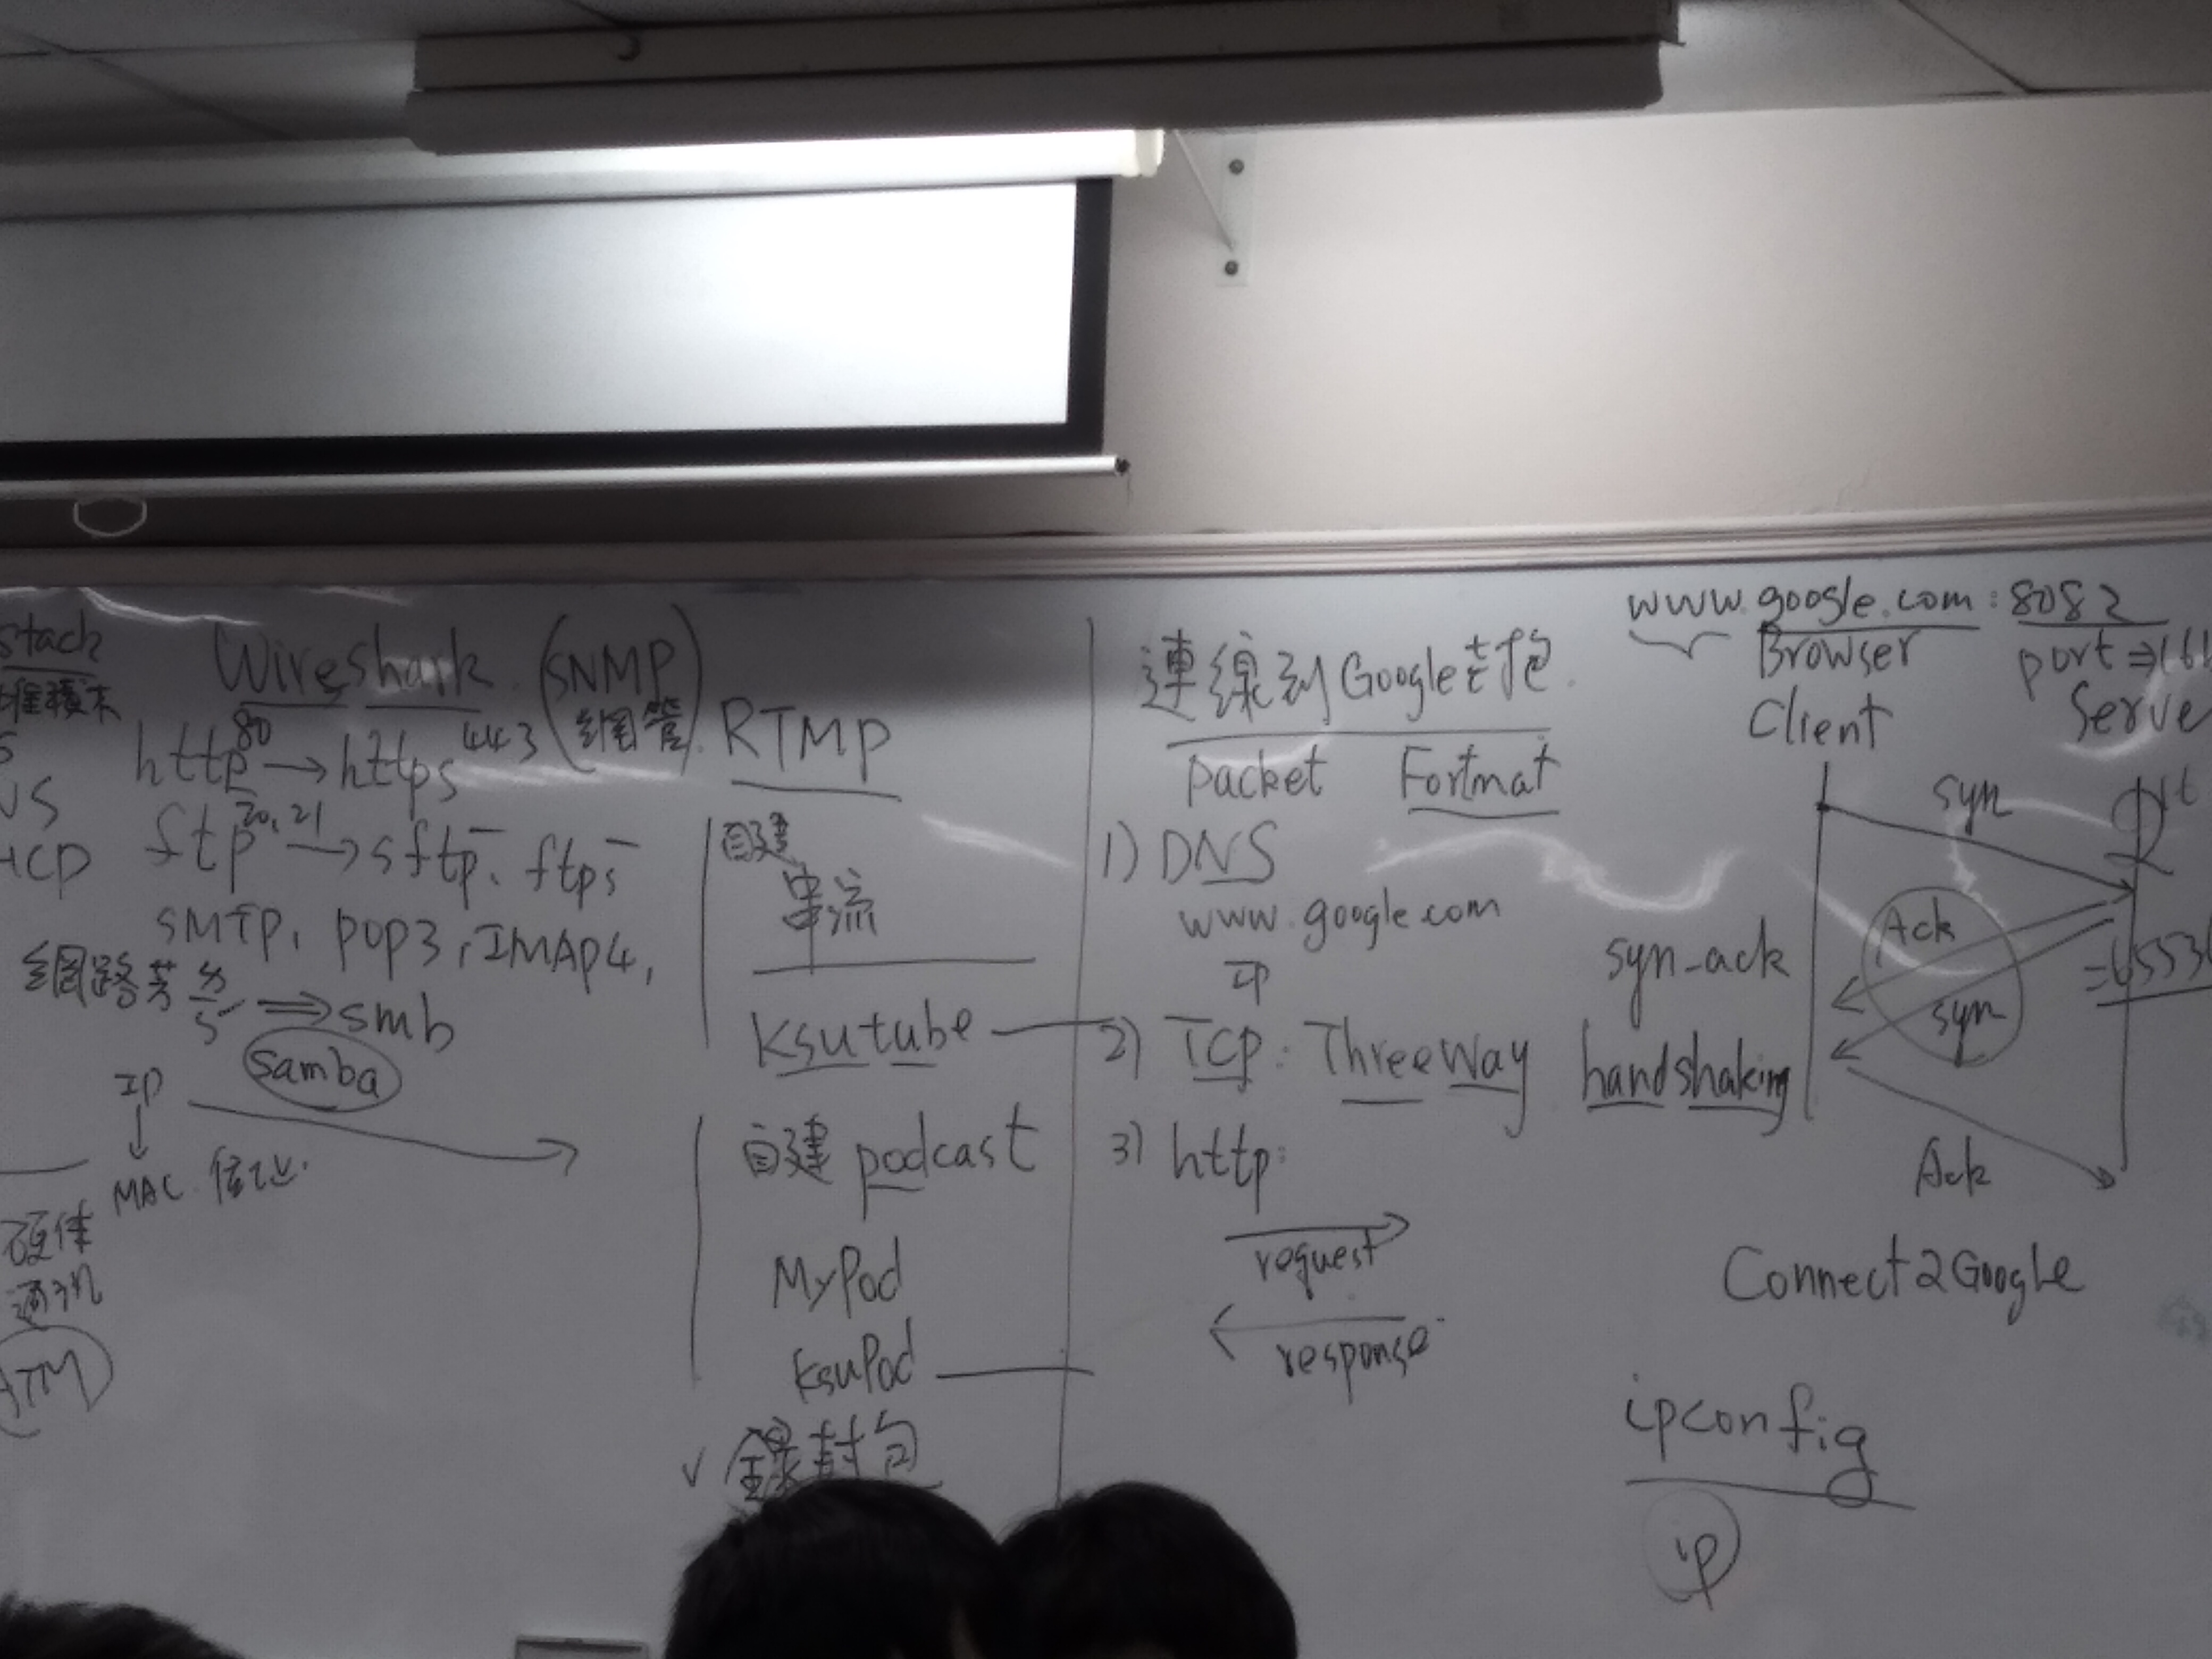 stack
堆積木
NS
HCP
Wireshark (SNMP
網管)
http 80 → https 443
ftp 20, 21 → sftp、ftps
SMTP, POP3, IMAP4,
網路芳
⇒ smb
samba
IP
↓
MAC
硬体
ATM
RTMP
自建
串流
ksutube
自建 podcast
MyPod
KsuPod
✓ 錄封包
連線到Google封包
packet Fortmat
1) DNS
www.google.com
IP
2) TCP: Three Way handshaking
syn-ack
3) http:
request
response
www.google.com:8082
Browser
port ⇒ 16
Client
Serve
syn
Ack
syn
=65536
Ack
Connect2Google
ipconfig
ip